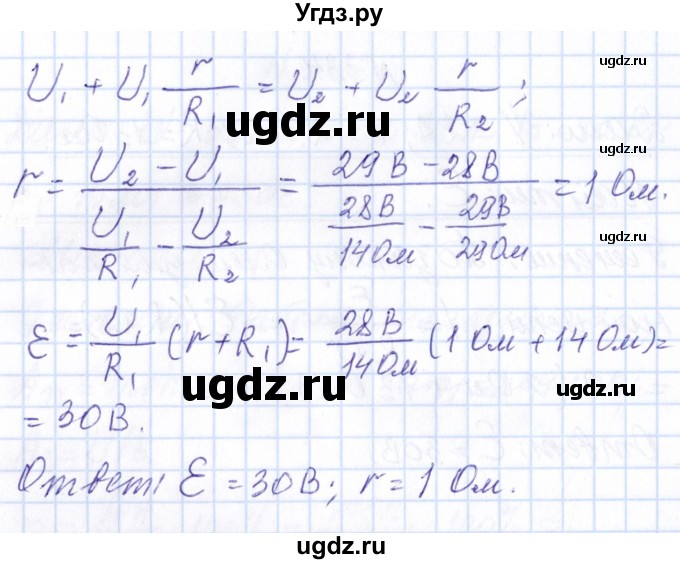 Угдз.ру
U₁ + U₁ r/R₁ = U₂ + U₂ r/R₂ ;
ugdz.ru
ugdz.ru
ugdz.ru
r = (U₂ − U₁)/(U₁/R₁ − U₂/R₂) = (29 В − 28 В)/(28 В/14 Ом − 29 В/29 Ом) = 1 Ом.
ugdz.ru
ugdz.ru
ℰ = U₁/R₁ (r + R₁) = 28 В/14 Ом (1 Ом + 14 Ом) =
ugdz.ru
ugdz.ru
= 30 В.
ugdz.ru
Ответ: ℰ = 30 В; r = 1 Ом.
ugdz.ru
ugdz.ru